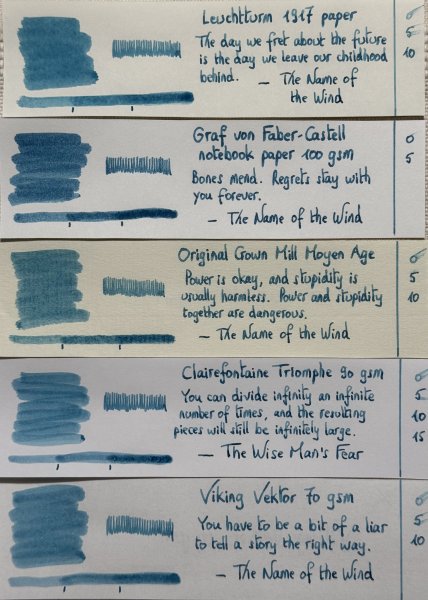 Leuchtturm 1917 paper
0
The day we fret about the future
5
is the day we leave our childhood
10
behind. — The Name of
the Wind
Graf von Faber-Castell
0
notebook paper 100 gsm
5
Bones mend. Regrets stay with
you forever.
— The Name of the Wind
Original Crown Mill Moyen Age
0
Power is okay, and stupidity is
5
usually harmless. Power and stupidity
10
together are dangerous.
— The Name of the Wind
Clairefontaine Triomphe 90 gsm
0
You can divide infinity an infinite
5
number of times, and the resulting
10
pieces will still be infinitely large.
15
— The Wise Man's Fear
Viking Vektor 70 gsm
0
You have to be a bit of a liar
5
to tell a story the right way.
10
— The Name of the Wind